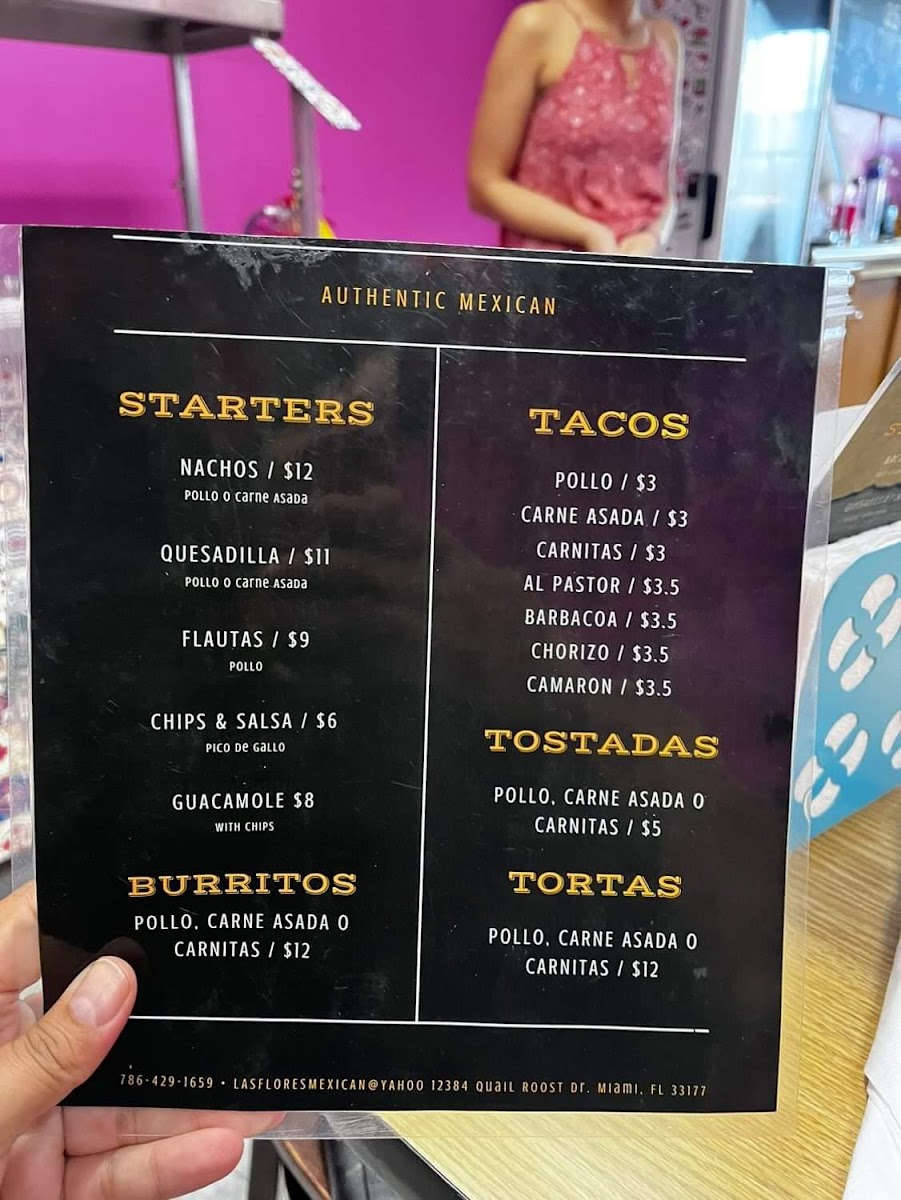 AUTHENTIC MEXICAN
STARTERS
NACHOS / $12
POLLO O Carne ASADA
QUESADILLA / $11
POLLO O Carne ASADA
FLAUTAS / $9
POLLO
CHIPS & SALSA / $6
PICO De GALLO
GUACAMOLE $8
WITH CHIPS
BURRITOS
POLLO, CARNE ASADA O
CARNITAS / $12
TACOS
POLLO / $3
CARNE ASADA / $3
CARNITAS / $3
AL PASTOR / $3.5
BARBACOA / $3.5
CHORIZO / $3.5
CAMARON / $3.5
TOSTADAS
POLLO, CARNE ASADA O
CARNITAS / $5
TORTAS
POLLO, CARNE ASADA O
CARNITAS / $12
786-429-1659 • LASFLORESMEXICAN@YAHOO 12384 QUAIL ROOST Dr. MIAMI, FL 33177